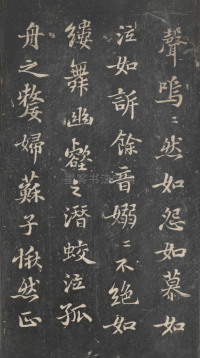 聲嗚〻然如怨如慕如
泣如訴餘音嫋〻不絕如
縷舞幽壑之潛蛟泣孤
舟之嫠婦蘇子愀然正